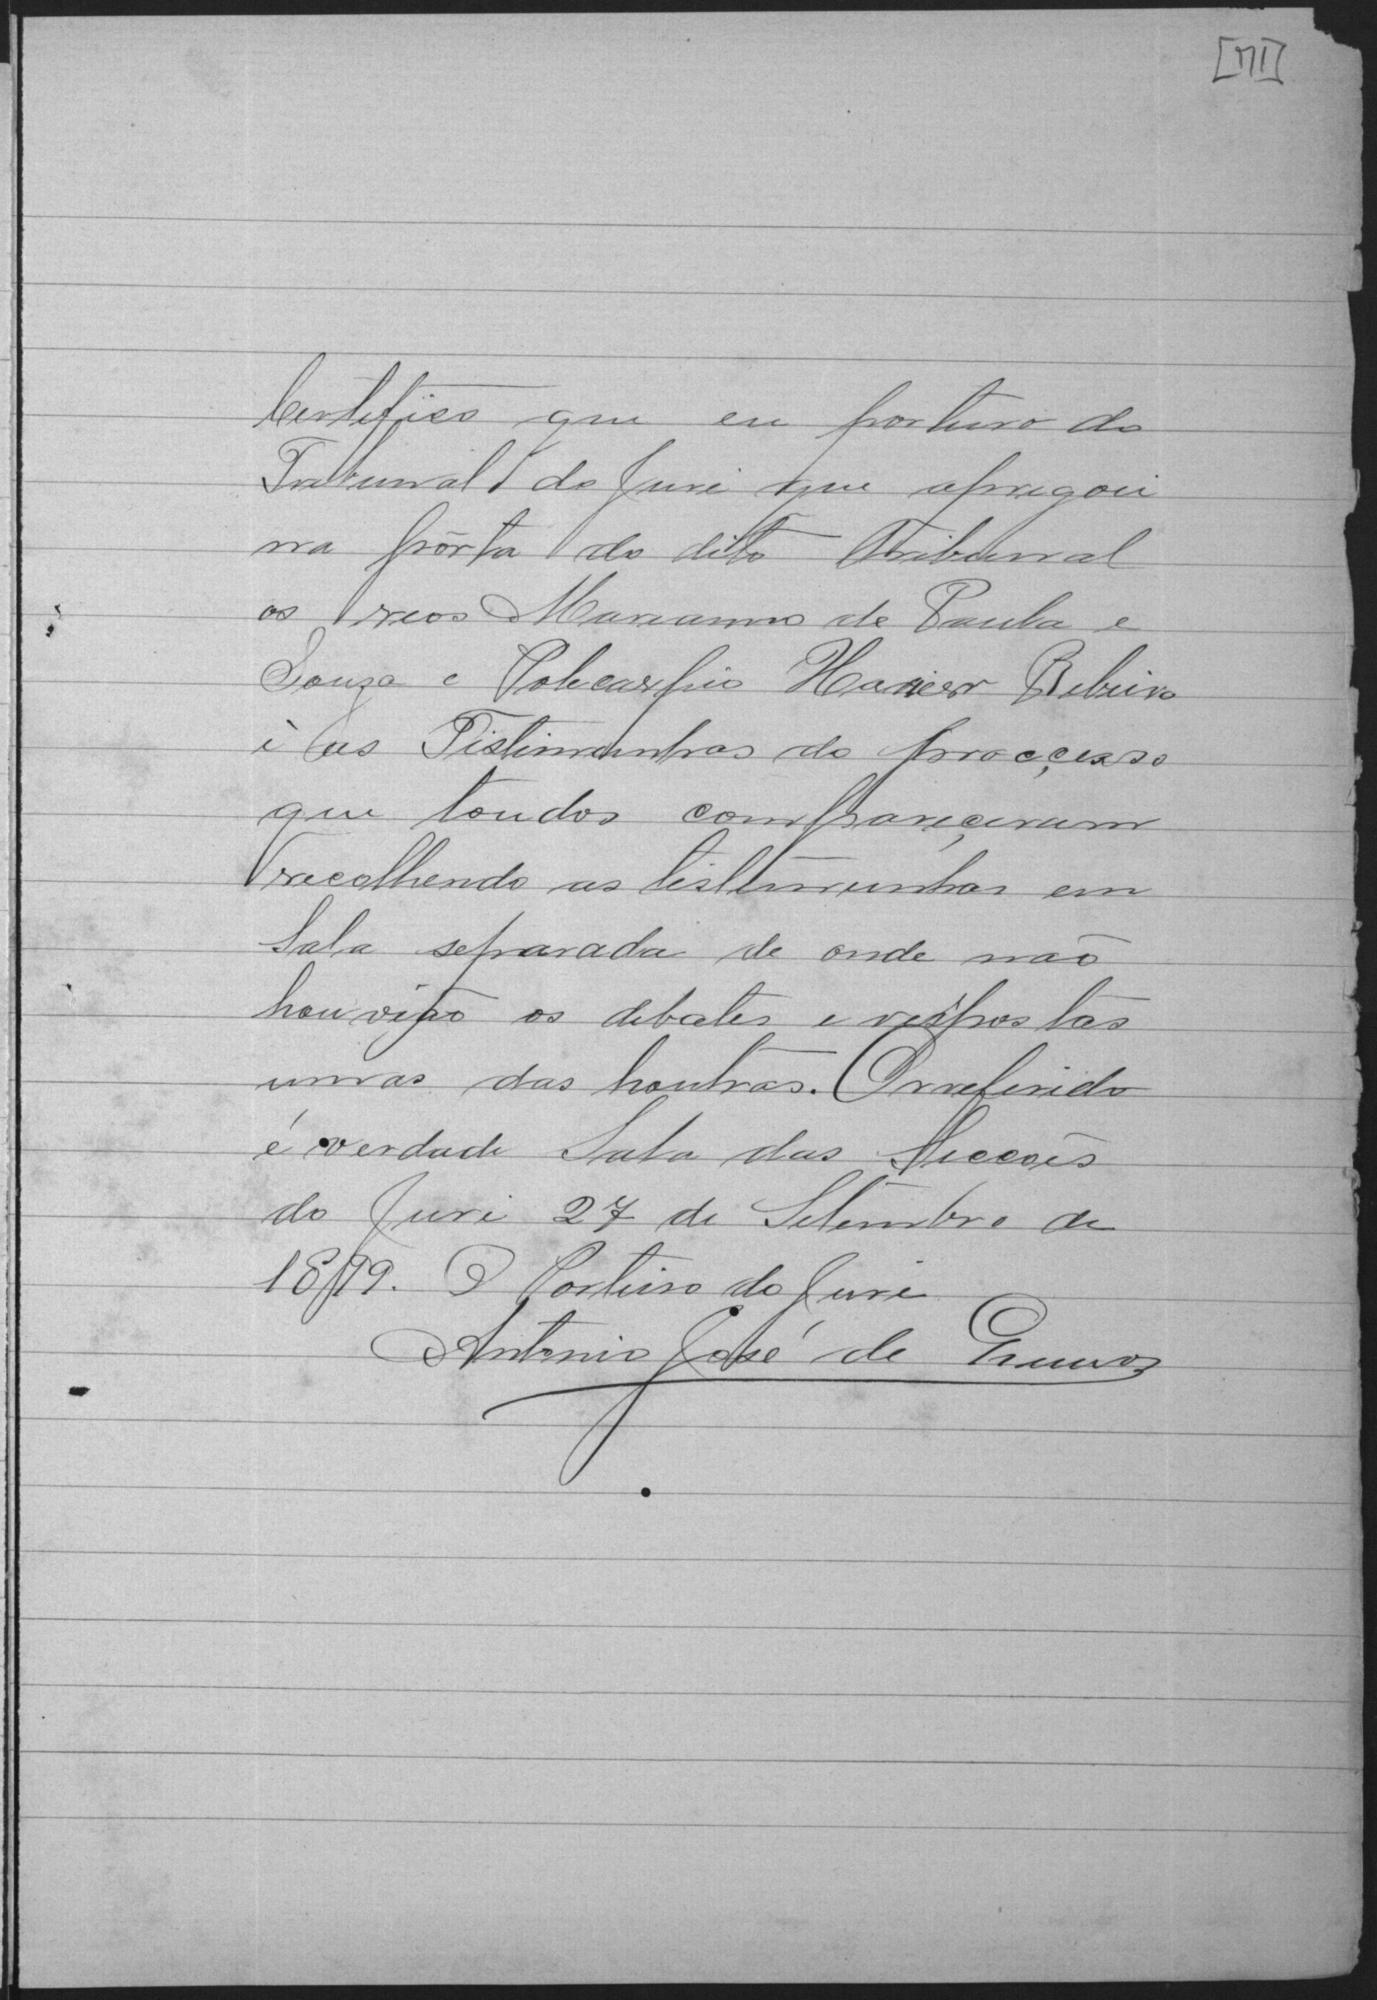 [171]
Certifico que eu porteiro do
Tribunal do Juri que apregoei
na pórta do dito Tribunal
os reos Marianno de Paula e
Souza e Policarpio Xavier Ribeiro
i as Tistimunhas do procçesso
que toudos compareçeram
recolhendo as tistimunhas em
Sala separada de onde não
houvição os debates e respostas
umas das houtras. Orreferido
é verdade Sala das Secções
do Juri 27 de Setembro de
1899. O Porteiro do Juri
Antonio José de